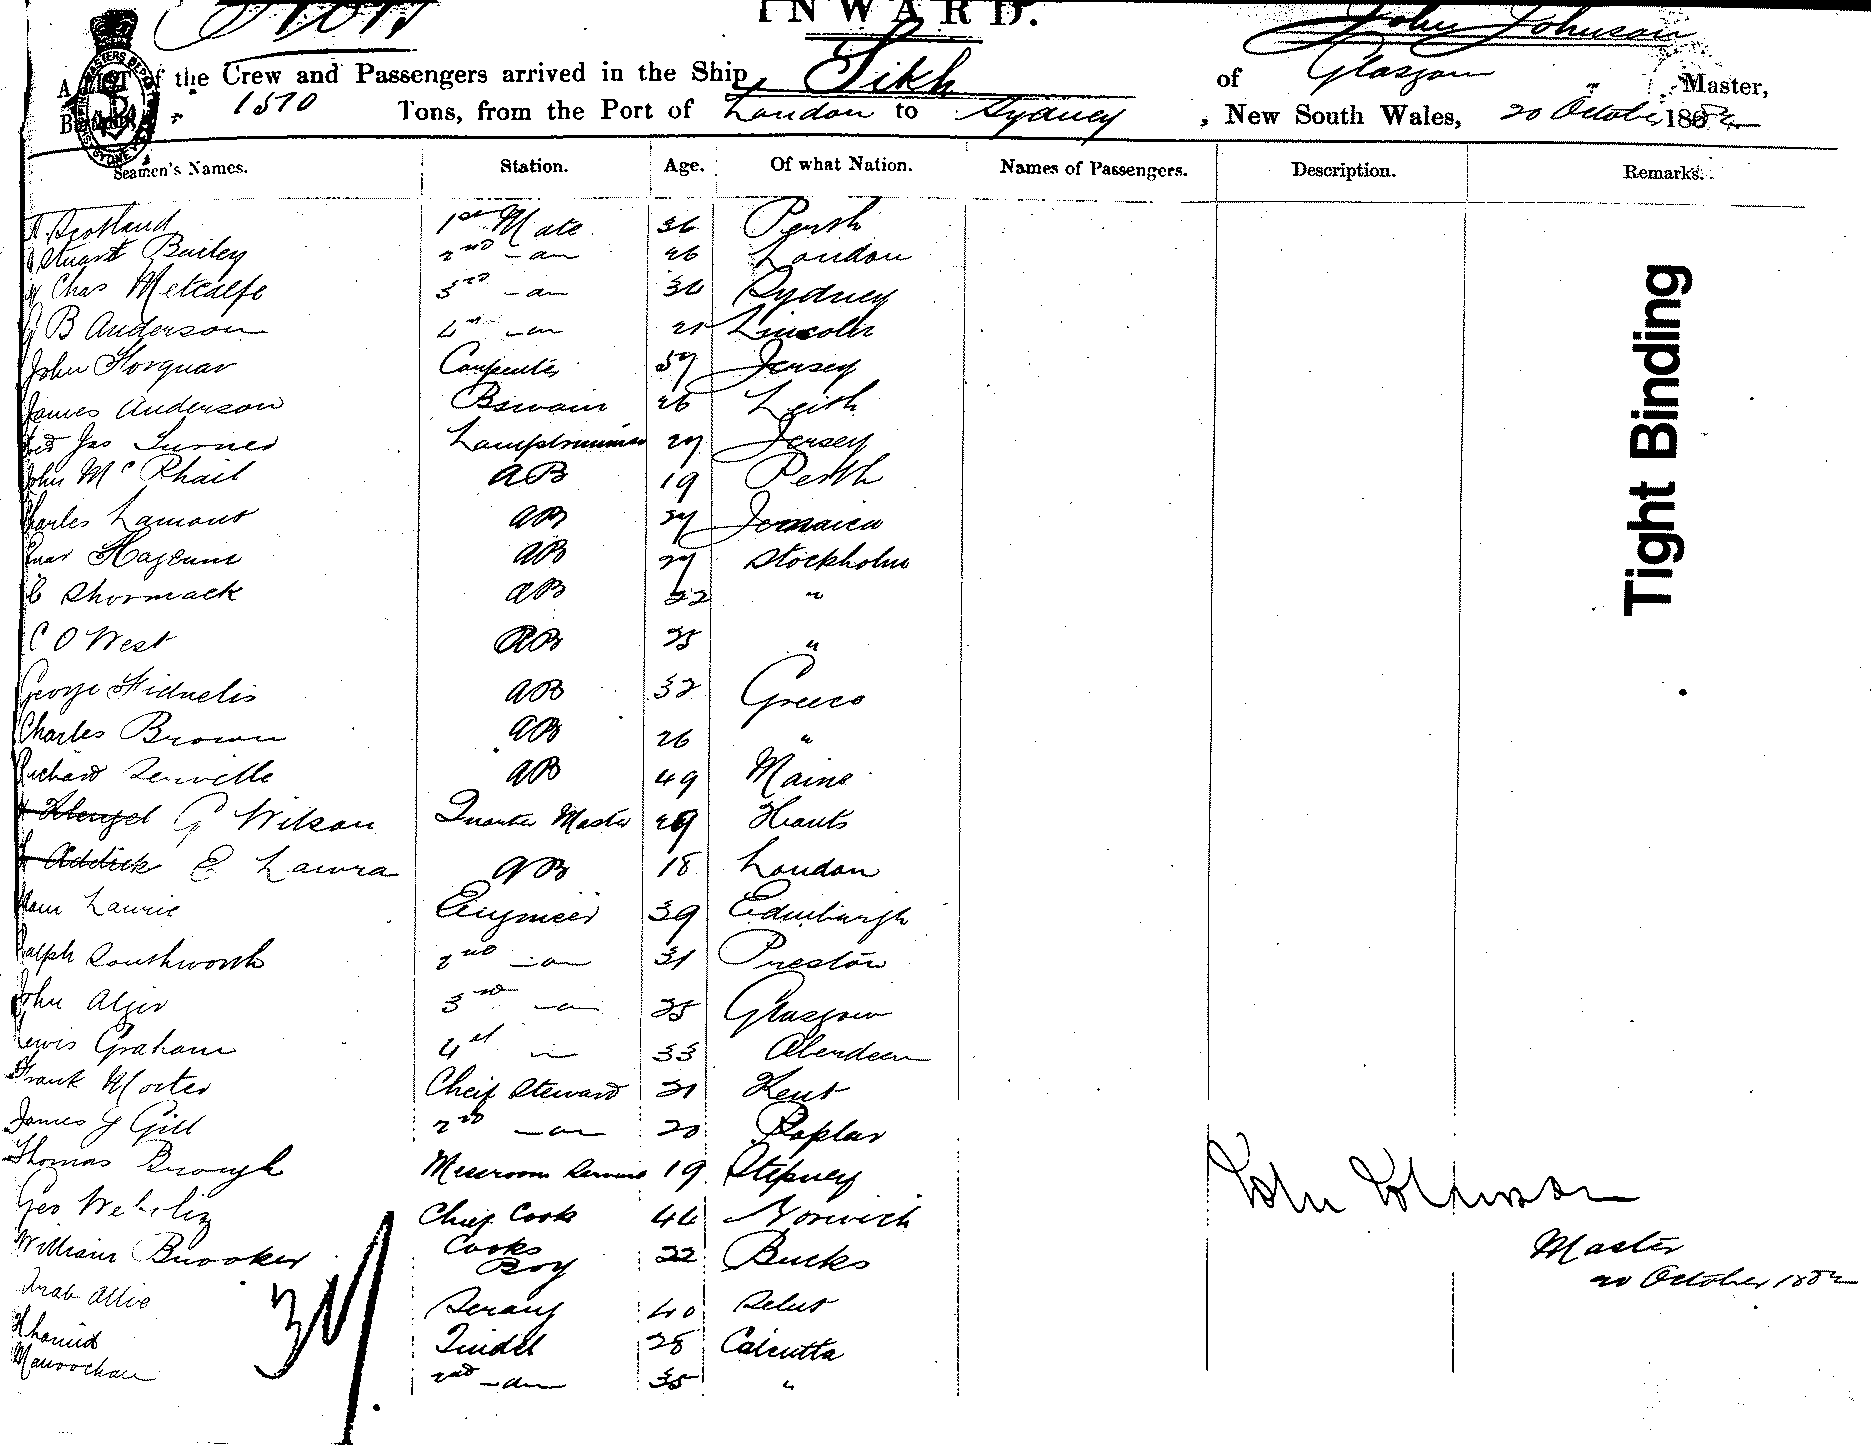 INWARD.
John Johnson
A LIST of the Crew and Passengers arrived in the Ship Sikh of Glasgow Master,
Burthen 1510 Tons, from the Port of London to Sydney, New South Wales, 20 October 1882
Seamen's Names. Station. Age. Of what Nation. Names of Passengers. Description. Remarks.
Scotland 1st Mate 36 Perth
Stuart Bailey 2nd -do 26 London
Chas Metcalfe 3rd -do 36 Sydney
B Anderson 4th -do 21 Lincoln
John Forquar Carpenter 57 Jersey
James Anderson Bswain 26 Leith
Jas Turner Lamptrimmer 27 Jersey
John McPhail AB 19 Perth
Charles Lamont AB 27 Jamaica
AB 27 Stockholm
AB 22 "
C O West AB 25 "
George AB 32 Greece
Charles Brown AB 26 "
Richard AB 49 Maine
G Wilson Quarter Master 29 Hants
E AB 18 London
Laurie Engineer 39 Edinburgh
Ralph Southworth 2nd -do 31 Preston
John Alger 3rd -do 25 Glasgow
Lewis Graham 4th 33 Aberdeen
Frank Morter Cheif Steward 21 Kent
James G Gill 2nd -do 20 Poplar
Thomas Brough Messroom 19 Stepney
Geo Chief Cook 46 Norwich
William Brooker Cooks Boy 22 Bucks
Arab Allie Serang 40
Khamid Tindel 28 Calcutta
2nd -do 35 "
Tight Binding
John Johnson
Master
20 October 1882